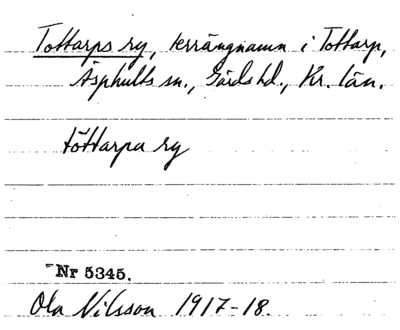 Tottarps ry, terrängnamn i Tottarp,
Äsphults sn., Gärds hd., Kr. län.
töttarpa ry
Nr 5345.
Ola Nilsson 1917-18.